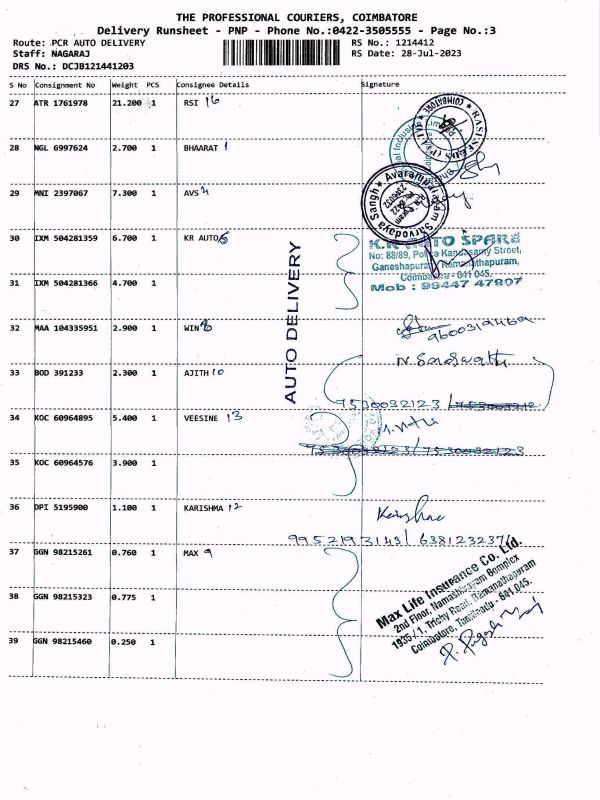 THE PROFESSIONAL COURIERS, COIMBATORE
Delivery Runsheet - PNP - Phone No.:0422-3505555 - Page No.:3
Route: PCR AUTO DELIVERY
RS No.: 1214412
Staff: NAGARAJ
RS Date: 28-Jul-2023
DRS No.: DCJB121441203
S No Consignment No Weight PCS Consignee Details Signature
27 ATR 1761978 21.200 1 RSI 16
28 NGL 6997624 2.700 1 BHAARAT 1
29 MNI 2397067 7.300 1 AVS 4
30 IXM 504281359 6.700 1 KR AUTO 5
31 IXM 504281366 4.700 1
32 MAA 104335951 2.900 1 WIN 8
33 BOD 391233 2.300 1 AJITH 10
34 KOC 60964895 5.400 1 VEESINE 13
35 KOC 60964576 3.900 1
36 DPI 5195900 1.100 1 KARISHMA 12
37 GGN 98215261 0.760 1 MAX 9
38 GGN 98215323 0.775 1
39 GGN 98215460 0.250 1
AUTO DELIVERY
COIMBATORE
Avarampalayam Sarvodaya Sangh
K.R AUTO SPARE
No: 88/89, Police Kandasamy Street,
Ganeshapuram, Ramanathapuram,
Coimbatore - 641 045.
Mob : 99447 47807
9600319469
7530032123
7530032123
9952193143 / 6381232371
Max Life Insurance Co. Ltd.
2nd Floor, Namashivayam Complex
1935/1, Trichy Road, Ramanathapuram
Coimbatore, Tamilnadu - 641 045.